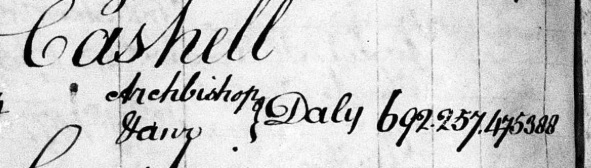 Cashell
Archbishop } Daly 692.257.475388